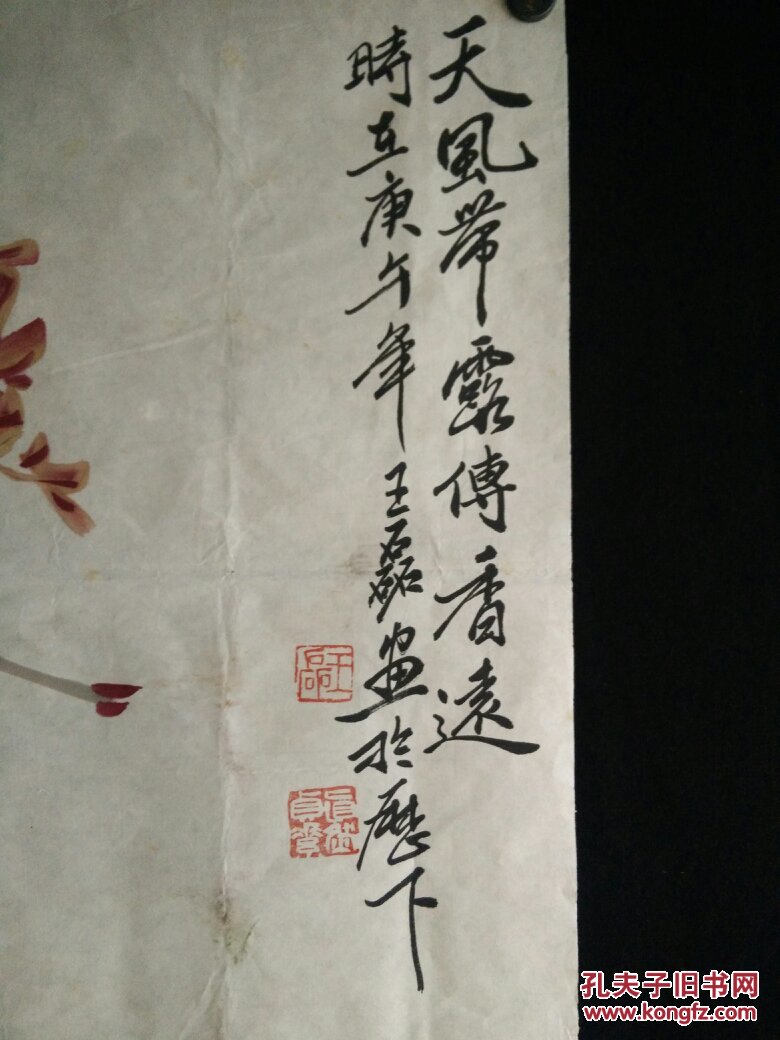 天風帶露傳香遠
時在庚午年王磊畫於歷下
王磊
孔夫子旧书网
www.kongfz.com